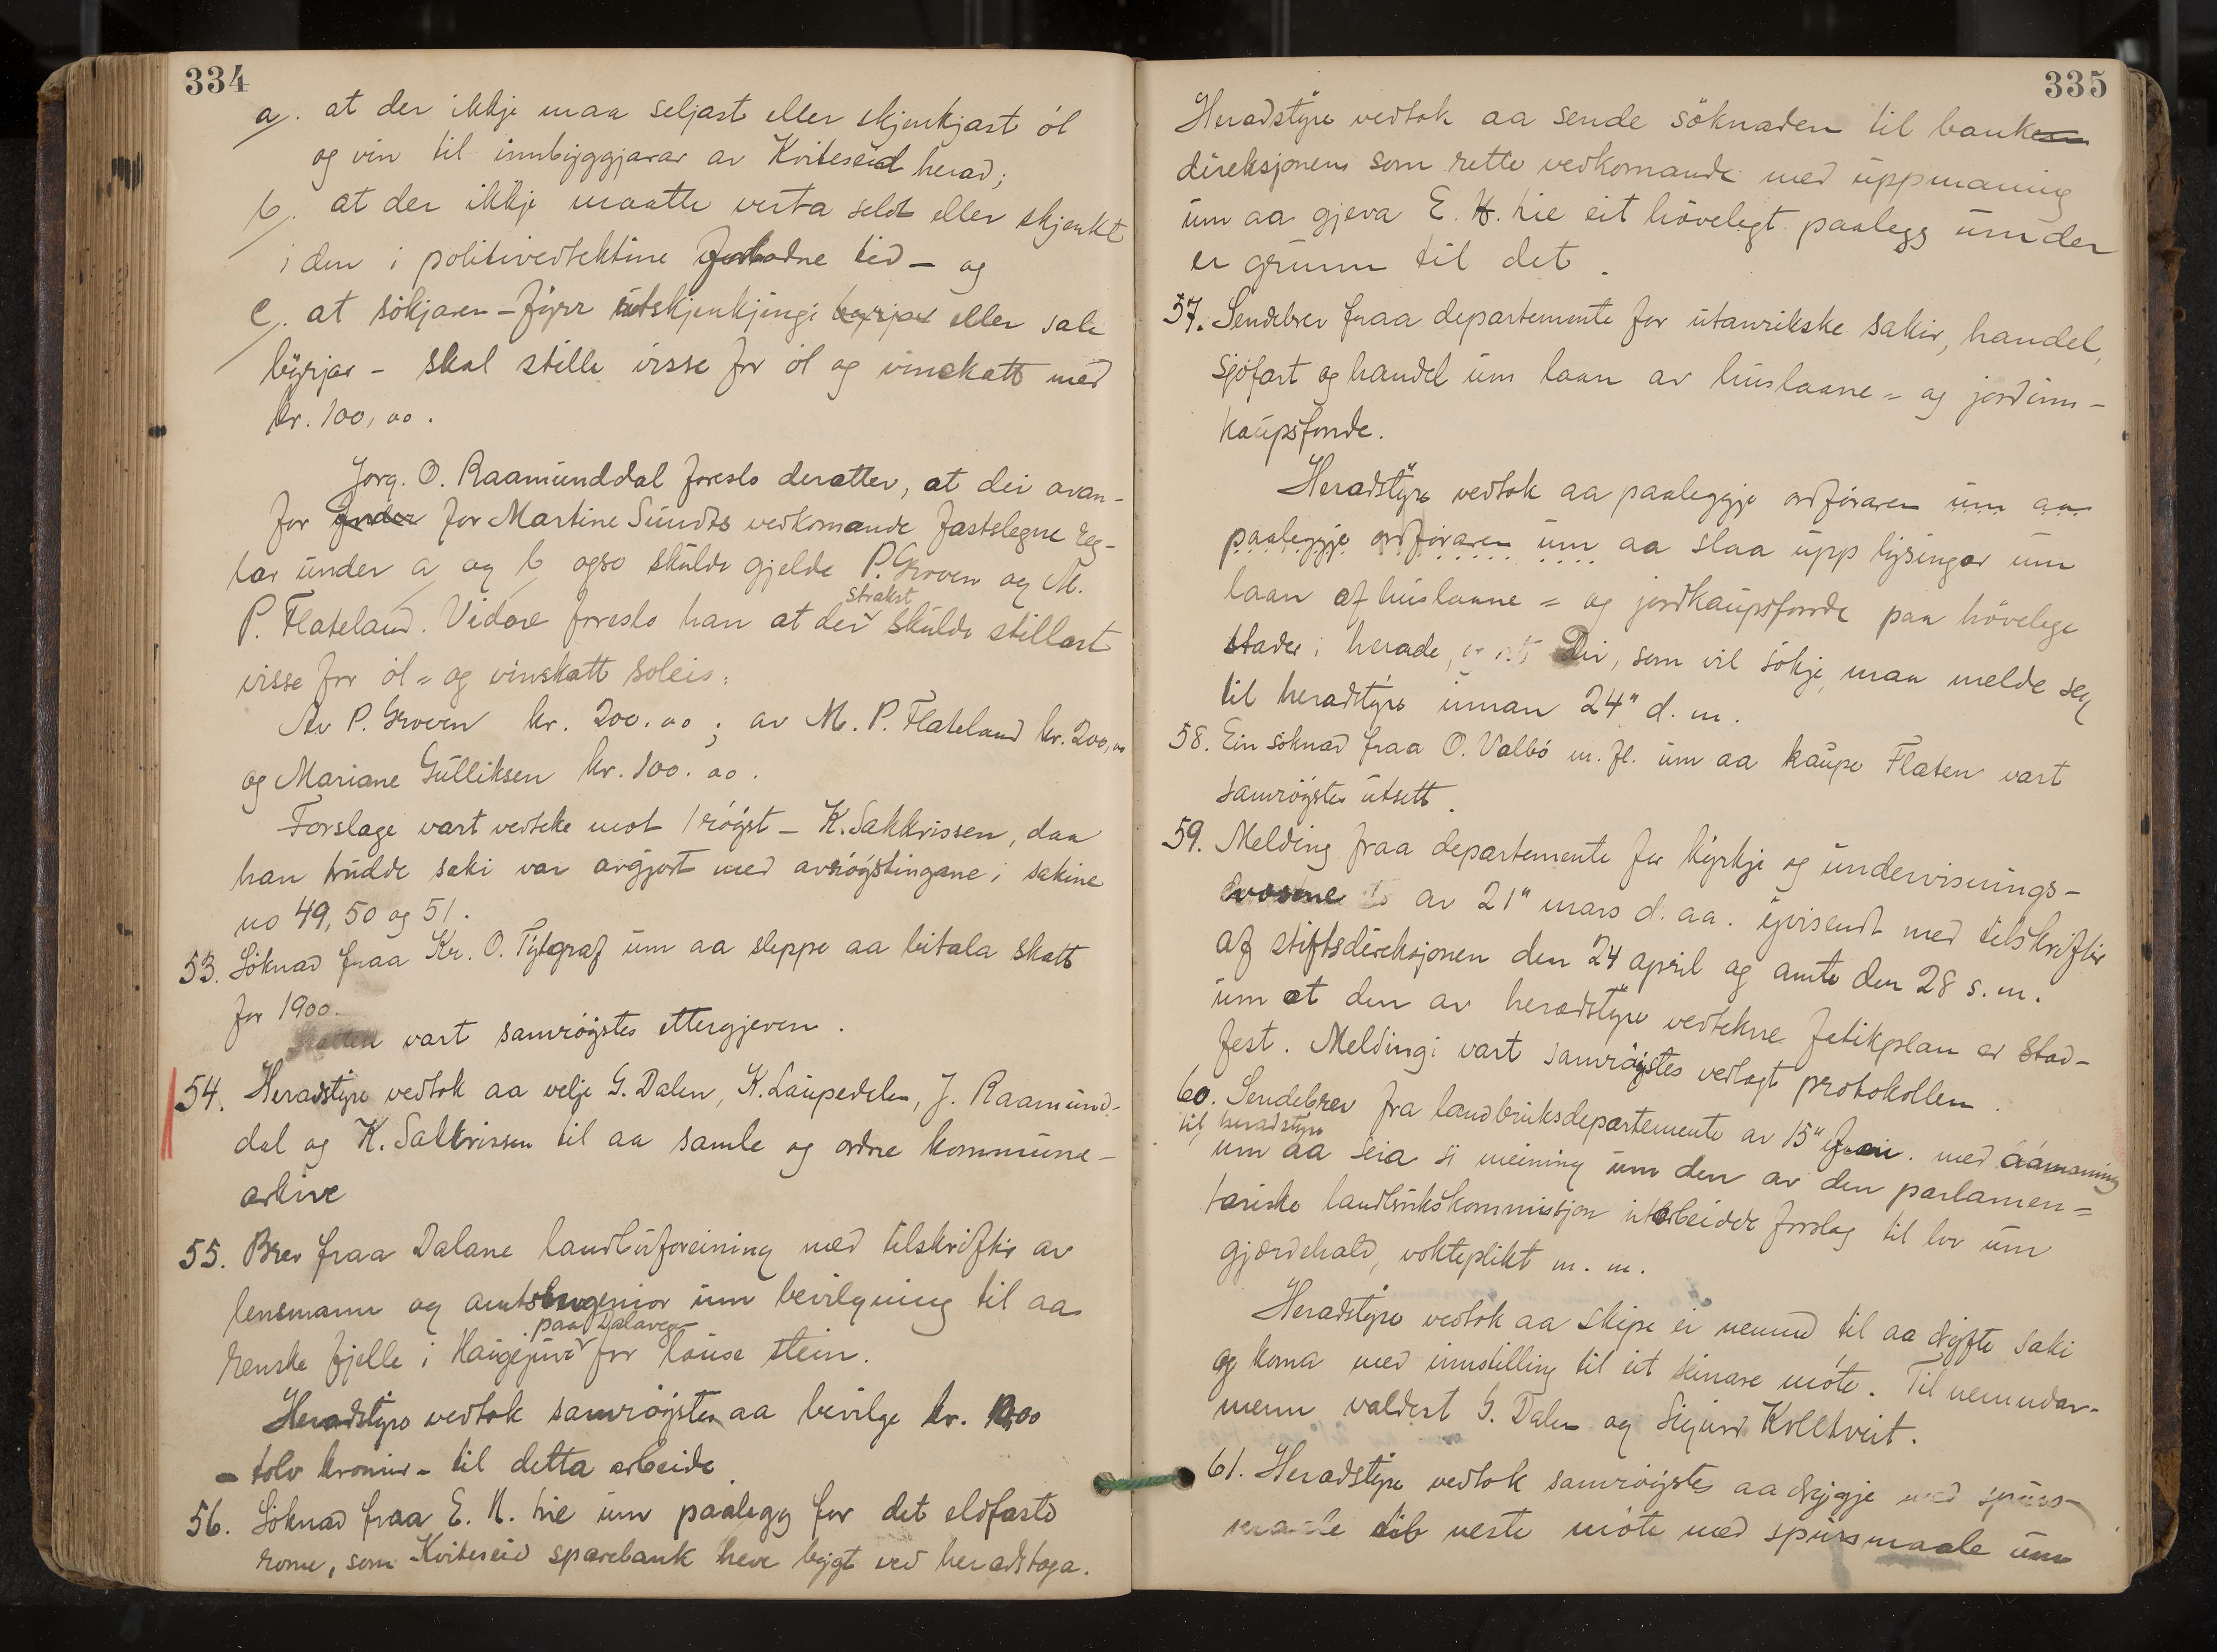 334
a/. at der ikkje maa seljast eller skjenkjast öl
og vin til innbyggjarar av Kviteseid herad;
b/. at der ikkje maatte verta seldt eller skjenkt
i den i politivedtektine forbodne tid – og
c/. at sökjaren – fyrr utskjenkjingi byrjar eller sale
byrjar – skal stille visse for öl og vinskatt med
kr. 100,00.
Jörg. O. Raamunddal foreslo deretter, at dei ovan-
for for Martine Sundts vedkomande fastslegne reg-
lar under a/ og b/ ogso skulde gjelde P. Groven og M.
P. Flateland. Vidare foreslo han at der strakst skulde stillast
visse for öl= og vinskatt soleis:
Av P. Groven kr. 200.00; av M. P. Flateland kr. 200,00
og Mariane Gulliksen kr. 100.00.
Forslage vart vedteke mot 1 röyst – K. Sakkrissen, daa
han trudde saki var avgjort med avröystingane i sakine
no 49, 50 og 51.
53. Söknad fraa Kr. O. Tytegraf um aa sleppe aa bitala skatt
for 1900.
Skatten vart samröystes ettergjeven.
54. Heradstyre vedtok aa velje G. Dalen, K. Laupedalen, J. Raamund-
dal og K. Sakkrissen til aa samle og ordne kommune-
arkive
55. Brev fraa Dalane landbūforeining med tilskrifter av
lensmann og amtsingeniör um bevilgning til aa
renske fjelle i Haugejuve paa Dalaveg for lause stein.
Heradstyre vedtok samröystes aa bevilge kr. 12,00
– tolv kronur – til detta arbeide.
56. Söknad fraa E. H. Lie um paalegg for det eldfaste
rome, som Kviteseid sparebank heve bygt ved heradstoga.
335
Heradstyre vedtok aa sende söknaden til banken
direksjonen som rette vedkomande med uppmaning
um aa gjeva E. H. Lie eit höveligt paalegg um der
er grunn til det.
57. Sendebrev fraa departemente for utanrikske sakir, handel,
sjöfart og handel um laan av huslaane= og jordinn-
kaupsfonde.
Heradstyre vedtok aa paaleggje ordföraren um aa
paaleggje ordföraren um aa slaa upp lysingar um
laan af huslaane= og jordkaupsfonde paa hövelege
stader i herade, Dei, som vil sökje, maa melde seg
til heradstyre innan 24" d. m.
58. Ein söknad fraa O. Valbö m. fl. um aa kaupe Flaten vart
samröystes utsett.
59. Melding fraa departemente for kyrkje og undervisnings-
av 21" mars d. aa. yvisendt med tilskrifter
af stiftsdireksjonen den 24 april og amte den 28 s. m.
um at den av heradstyre vedtekne fatikplan er stad-
fest. Meldingi vart samröystes vedlagt protokollen.
60. Sendebrev fra landbruksdepartemente av 15" med áámaning
til heradstyre um aa seia si meining um den av den parlamen=
tariske landbrukskommissjon utarbeidde forslag til lov um
gjærdehald, vokteplikt m. m.
Heradstyre vedtok aa skipe ei nemnd til aa dryfte saki
og koma med innstilling til eit seinare möte. Til nemndar-
menn valdest G. Dalen og Sigurd Kvelltveit.
61. Heradstyre vedtok samröystes aa drygje med spurs-
maale til neste möte med spursmaale um